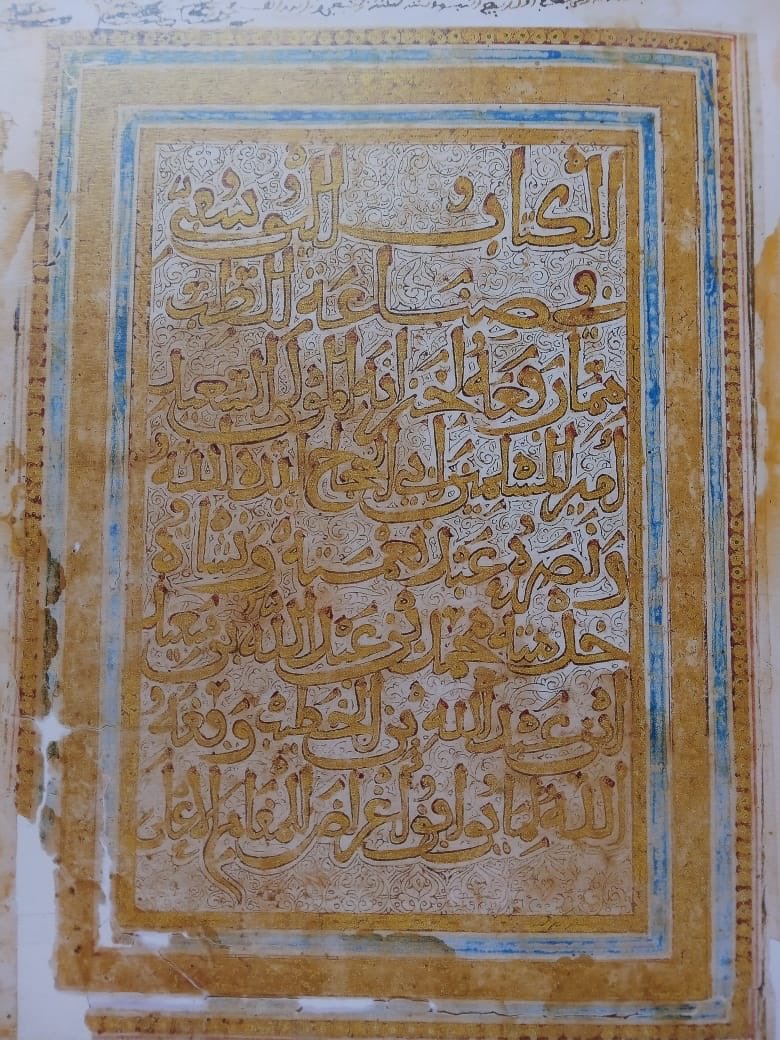 الكتاب اليوسفي
في صناعة الطب
مما رفعه لخزانة المولى السعيد
أمير المسلمين أبي الحجاج أيده الله
ونصره عبد نعمته ونشأة
خدمته محمد بن عبد الله بن سعيد
ابن عبد الله بن الخطيب وفقه
الله لما يوافق أغراض المقام الأعلى